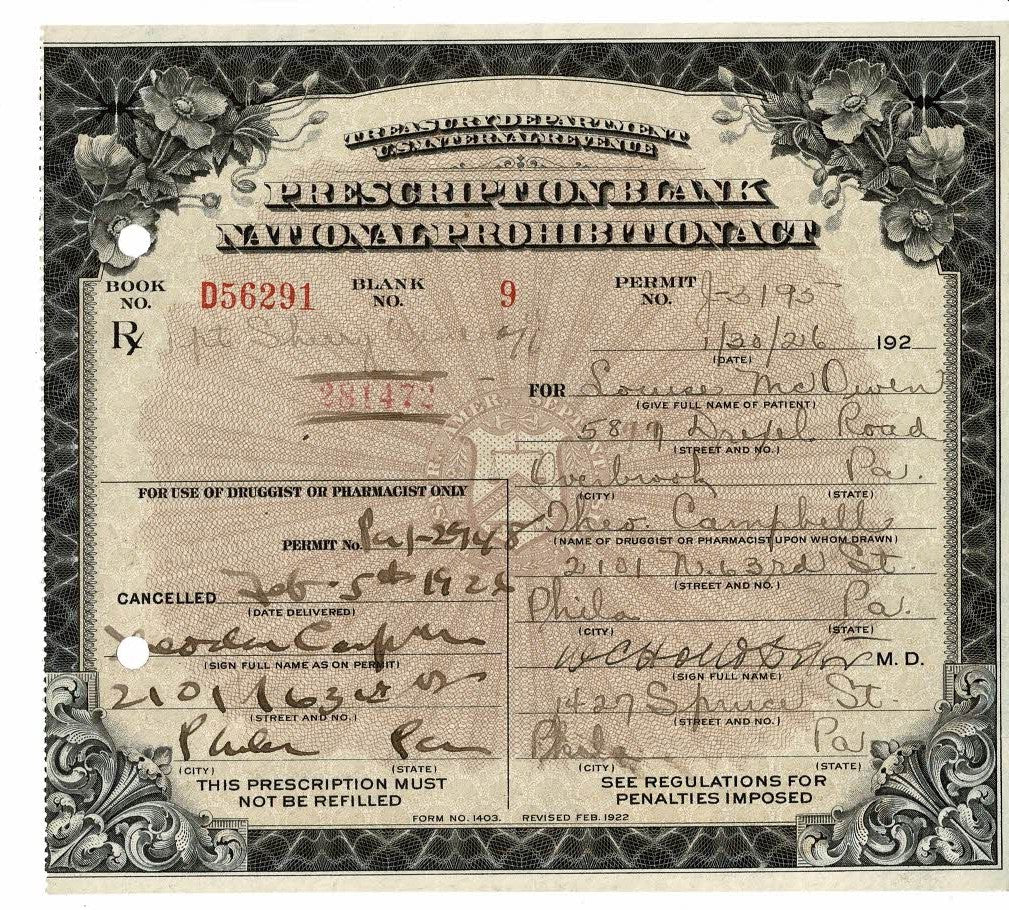 TREASURY DEPARTMENT
U.S. INTERNAL REVENUE
PRESCRIPTION BLANK
NATIONAL PROHIBITION ACT
BOOK NO. D56291 BLANK NO. 9 PERMIT NO. J-3195
Rx 1 pt Sherry
1/30/26 192
(DATE)
281472
FOR Louise McOwen
(GIVE FULL NAME OF PATIENT)
Drexel Road
(STREET AND NO.)
Overbrook Pa.
(CITY) (STATE)
Theo. Campbell
(NAME OF DRUGGIST OR PHARMACIST UPON WHOM DRAWN)
2101 N. 63rd St.
(STREET AND NO.)
Phila Pa.
(CITY) (STATE)
M. D.
(SIGN FULL NAME)
1427 Spruce St.
(STREET AND NO.)
Phila Pa
(CITY) (STATE)
SEE REGULATIONS FOR
PENALTIES IMPOSED
FOR USE OF DRUGGIST OR PHARMACIST ONLY
PERMIT No.
CANCELLED Feb 5th 1926
(DATE DELIVERED)
(SIGN FULL NAME AS ON PERMIT)
2101 N 63rd St
(STREET AND NO.)
Phila Pa
(CITY) (STATE)
THIS PRESCRIPTION MUST
NOT BE REFILLED
FORM NO. 1403. REVISED FEB. 1922